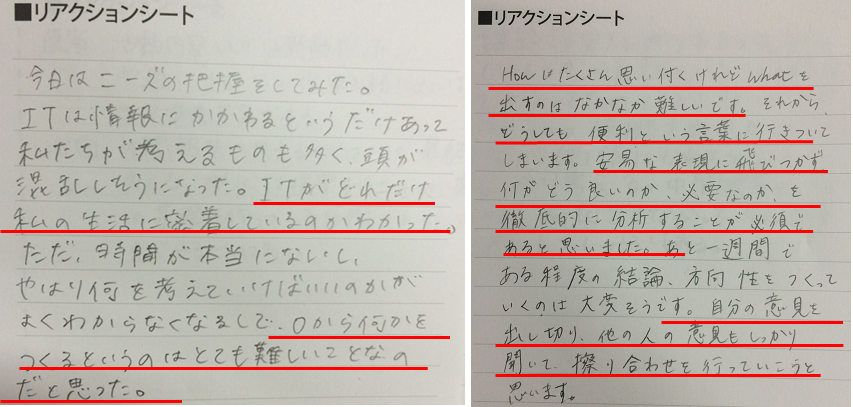 ■リアクションシート
今日はニーズの把握をしてみた。
ITは情報にかかわるというだけあって
私たちが考えるものも多く、頭が
混乱しそうになった。ITがどれだけ
私の生活に密着しているのかわかった。
ただ、時間が本当にないし、
やはり何を考えていけばいいのかが
よくわからなくなるしで、0から何かを
つくるというのはとても難しいことなの
だと思った。
■リアクションシート
Howはたくさん思い付くけれどwhatを
出すのはなかなか難しいです。それから、
どうしても便利という言葉に行きついて
しまいます。安易な表現に飛びつかず、
何がどう良いのか、必要なのか、を
徹底的に分析することが必須で
あると思いました。あと一週間で
ある程度の結論、方向性をつくって
いくのは大変そうです。自分の意見を
出し切り、他の人の意見もしっかり
聞いて、擦り合わせを行っていこうと
思います。